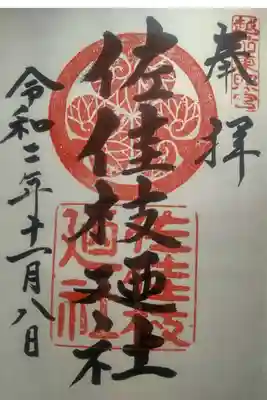 奉拝
佐佳枝廼社
佐佳枝
廼社
令和二年十一月八日